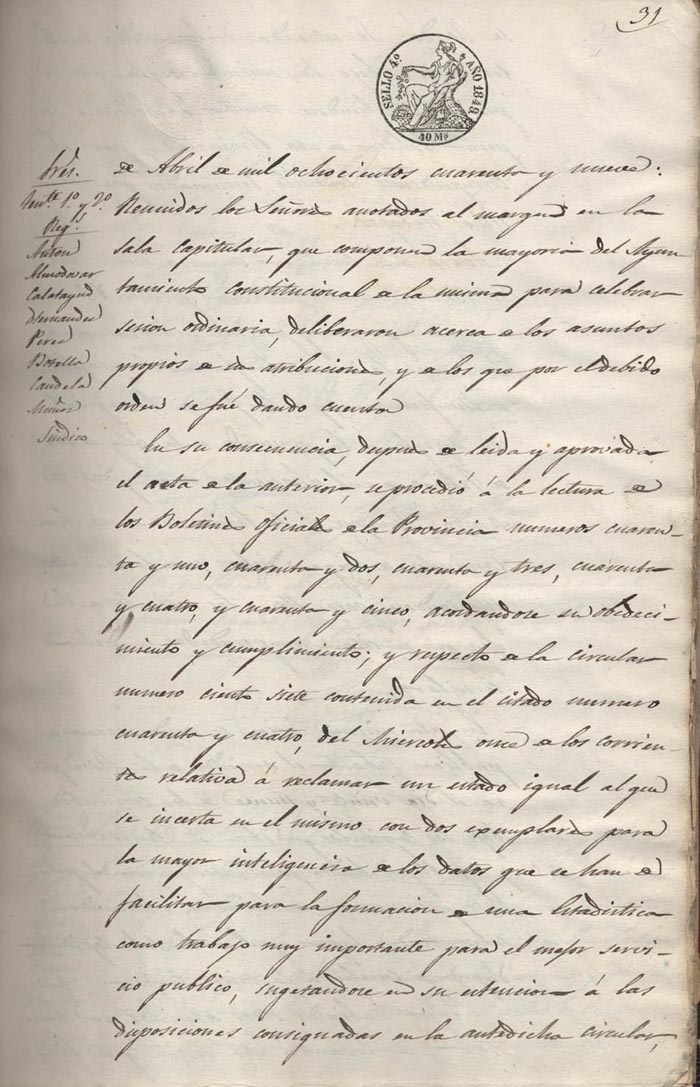 31
SELLO 4º AÑO 1849.
40 Ms
Sres.
Tente. 1º y 2º
Regs.
Anton
Almodovar
Calatayud
Hernandez
Perez
Botella
Candela
Muñoz
Sindico
de Abril de mil ochocientos cuarenta y nueve:
Reunidos los Señores anotados al margen en la
sala capitular, que componen la mayoria del Ayun
tamiento constitucional de la misma para celebrar
sesion ordinaria, deliberaron acerca de los asuntos
propios de sus atribuciones, y de los que por el debido
orden se fué dando cuenta
En su consecuencia, despues de leida y aprovada
el acta de la anterior, se procedió á la lectura de
los Boletines oficiales de la Provincia numeros cuaren-
ta y uno, cuarenta y dos, cuarenta y tres, cuarenta
y cuatro, y cuarenta y cinco, acordandose su obedeci-
miento y cumplimiento; y respecto de la circular
numero ciento siete contenida en el citado numero
cuarenta y cuatro, del Miercoles once de los corrien-
tes relativa á reclamar un estado igual al que
se incerta en el mismo con dos exemplares para
la mayor inteligencia de los datos que se han de
facilitar para la formacion de una Estadistica
como trabajo muy importante para el mejor servi-
cio publico, sugetandose en su estencion á las
disposiciones consignadas en la antedicha circular,